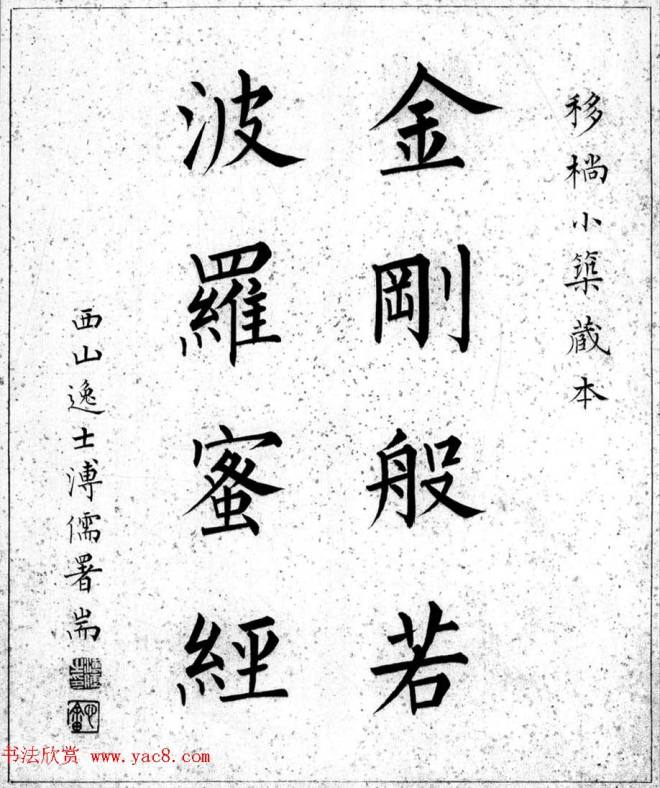 移樠小築藏本
金剛般若
波羅蜜經
西山逸士溥儒署耑
书法欣赏 www.yac8.com